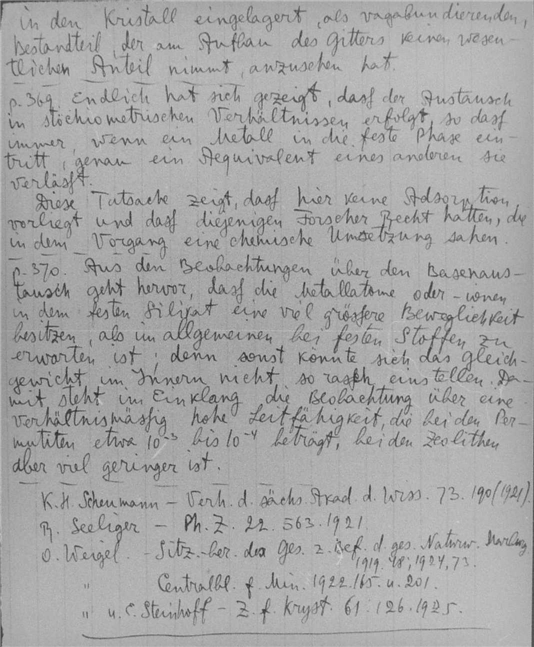 in den Kristall eingelagert, als vagabundierenden,
Bestandteil, der am Aufbau des Gitters keinen wesen-
tlichen Anteil nimmt, anzusehen hat.
p. 369. Endlich hat sich gezeigt, dass der Austausch
in stöchiometrischen Verhältnissen erfolgt, so dass
immer, wenn ein Metall in die feste Phase ein-
tritt, genau ein Aequivalent eines anderen sie
verlässt.
Diese Tatsache zeigt, dass hier keine Adsorption
vorliegt und dass diejenigen Forscher Recht hatten, die
in dem Vorgang eine chemische Umsetzung sahen.
p. 370. Aus den Beobachtungen über den Basenaus-
tausch geht hervor, dass die Metallatome oder -ionen
in dem festen Silikat eine viel grössere Beweglichkeit
besitzen, als im allgemeinen bei festen Stoffen zu
erwarten ist; denn sonst könnte sich das Gleich-
gewicht im Innern nicht so rasch einstellen. Da-
mit steht im Einklang die Beobachtung über eine
verhältnismässig hohe Leitfähigkeit, die bei den Per-
mutiten etwa 10⁻³ bis 10⁻⁴ beträgt, bei den Zeolithen
aber viel geringer ist.
K. H. Scheumann – Verh. d. sächs. Akad. d. Wiss. 73. 190 (1921).
R. Seeliger – Ph. Z. 22. 563. 1921.
O. Weigel. – Sitz.-ber. der Ges. z. Bef. d. ges. Naturw. Marburg
1919. 48; 1924, 73.
" Centralbl. f. Min. 1922. 165. u. 201.
" u. C. Steinhoff – Z. f. Kryst. 61. 126. 1925.